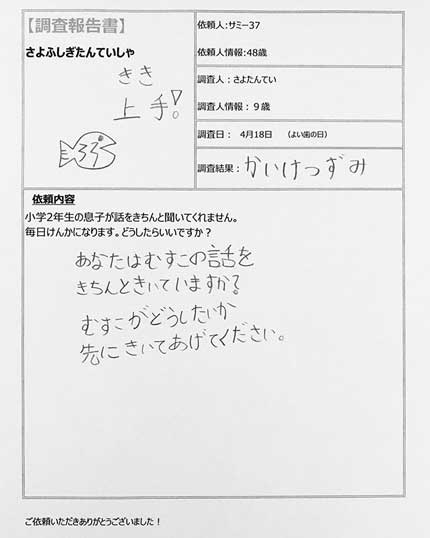 【調査報告書】
さよふしぎたんていしゃ
きき
上手!
依頼人:サミー37
依頼人情報:48歳
調査人:さよたんてい
調査人情報:9歳
調査日: 4月18日 (よい歯の日)
調査結果:かいけつずみ
依頼内容
小学2年生の息子が話をきちんと聞いてくれません。
毎日けんかになります。どうしたらいいですか?
あなたはむすこの話を
きちんときいていますか?
むすこがどうしたいか
先にきいてあげてください。
ご依頼いただきありがとうございました!